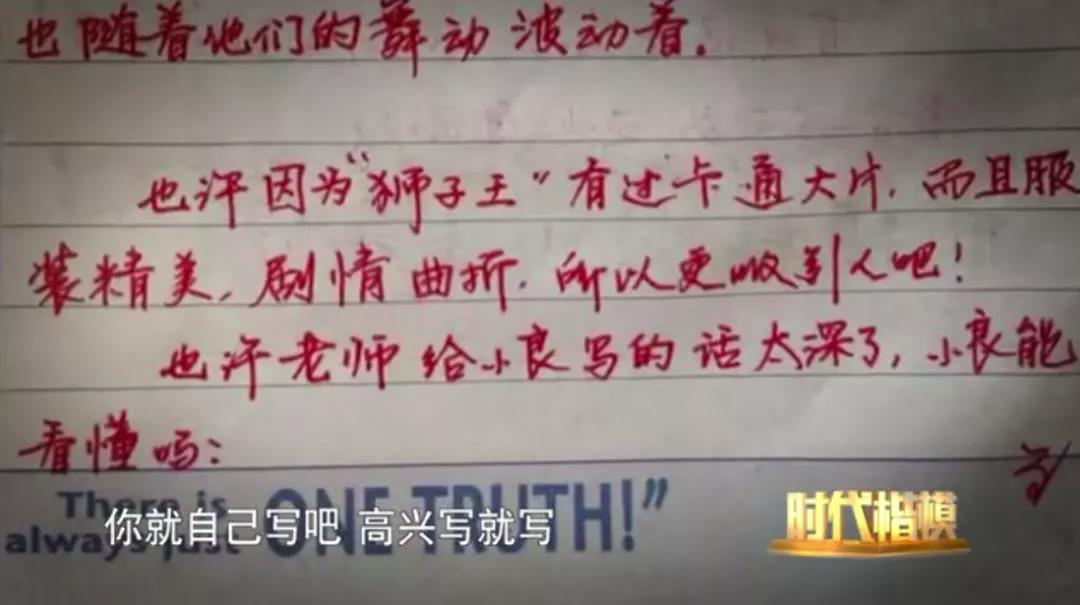 也随着他们的舞动波动着。
也许因为“狮子王”有过卡通大片，而且服
装精美，剧情曲折，所以更吸引人吧！
也许老师给小良写的话太深了，小良能
看懂吗：
There is
always just ONE TRUTH!”
你就自己写吧 高兴写就写
时代楷模